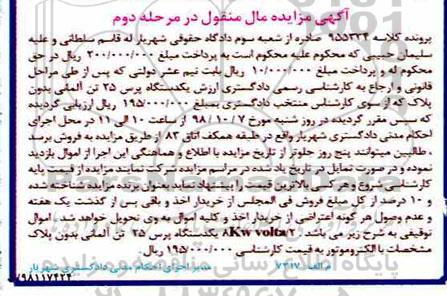 آگهی مزایده مال منقول در مرحله دوم
پرونده کلاسه ۹۵۵۳۳۴ صادره از شعبه سوم دادگاه حقوقی شهریار له قاسم سلطانی و علیه
سلیمان حبیبی که محکوم علیه محکوم است به پرداخت مبلغ ۲۰۰/۰۰۰/۰۰۰ ریال در حق
محکوم له و پرداخت مبلغ ۱۰/۰۰۰/۰۰۰ ریال بابت نیم عشر دولتی که پس از طی مراحل
قانونی و ارجاع به کارشناس رسمی دادگستری ارزش یکدستگاه پرس ۲۵ تن آلمانی بدون
پلاک که از سوی کارشناس منتخب دادگستری بمبلغ ۱۹۵/۰۰۰/۰۰۰ ریال ارزیابی گردیده
که سپس مقرر گردیده در روز شنبه مورخ ۹۸/۱۰/۷ از ساعت ۱۰ الی ۱۱ در محل اجرای
احکام مدنی دادگستری شهریار واقع در طبقه همکف اتاق ۸۳ از طریق مزایده به فروش برسد
. طالبین میتوانند پنج روز جلوتر از تاریخ مزایده با اطلاع و هماهنگی این اجرا از اموال بازدید
نموده و در صورت تمایل در تاریخ یاد شده در مراسم مزایده شرکت نمایند مزایده از قیمت پایه
کارشناسی شروع و هر کس بالاترین قیمت را پیشنهاد نماید بعنوان برنده مزایده شناخته شده
و ۱۰ درصد از کل مبلغ فروش فی المجلس از خریدار اخذ و باقی پس از گذشت یک هفته
و عدم وصول هر گونه اعتراضی از خریدار اخذ و کلیه اموال به وی تحویل خواهد شد. اموال
توقیفی به شرح زیر می باشد. یکدستگاه پرس ۲۵ تن آلمانی بدون پلاک
مشخصات با الکتروموتور به قیمت کارشناسی ۱۹۵/۰۰۰/۰۰۰ ریال.
م الف ۷۳۱۷ مدیر اجرای احکام مدنی دادگستری شهریار
۹۸۱۱۷۴۲۴/
پایگاه اطلاع رسانی مناقصه و مزایده